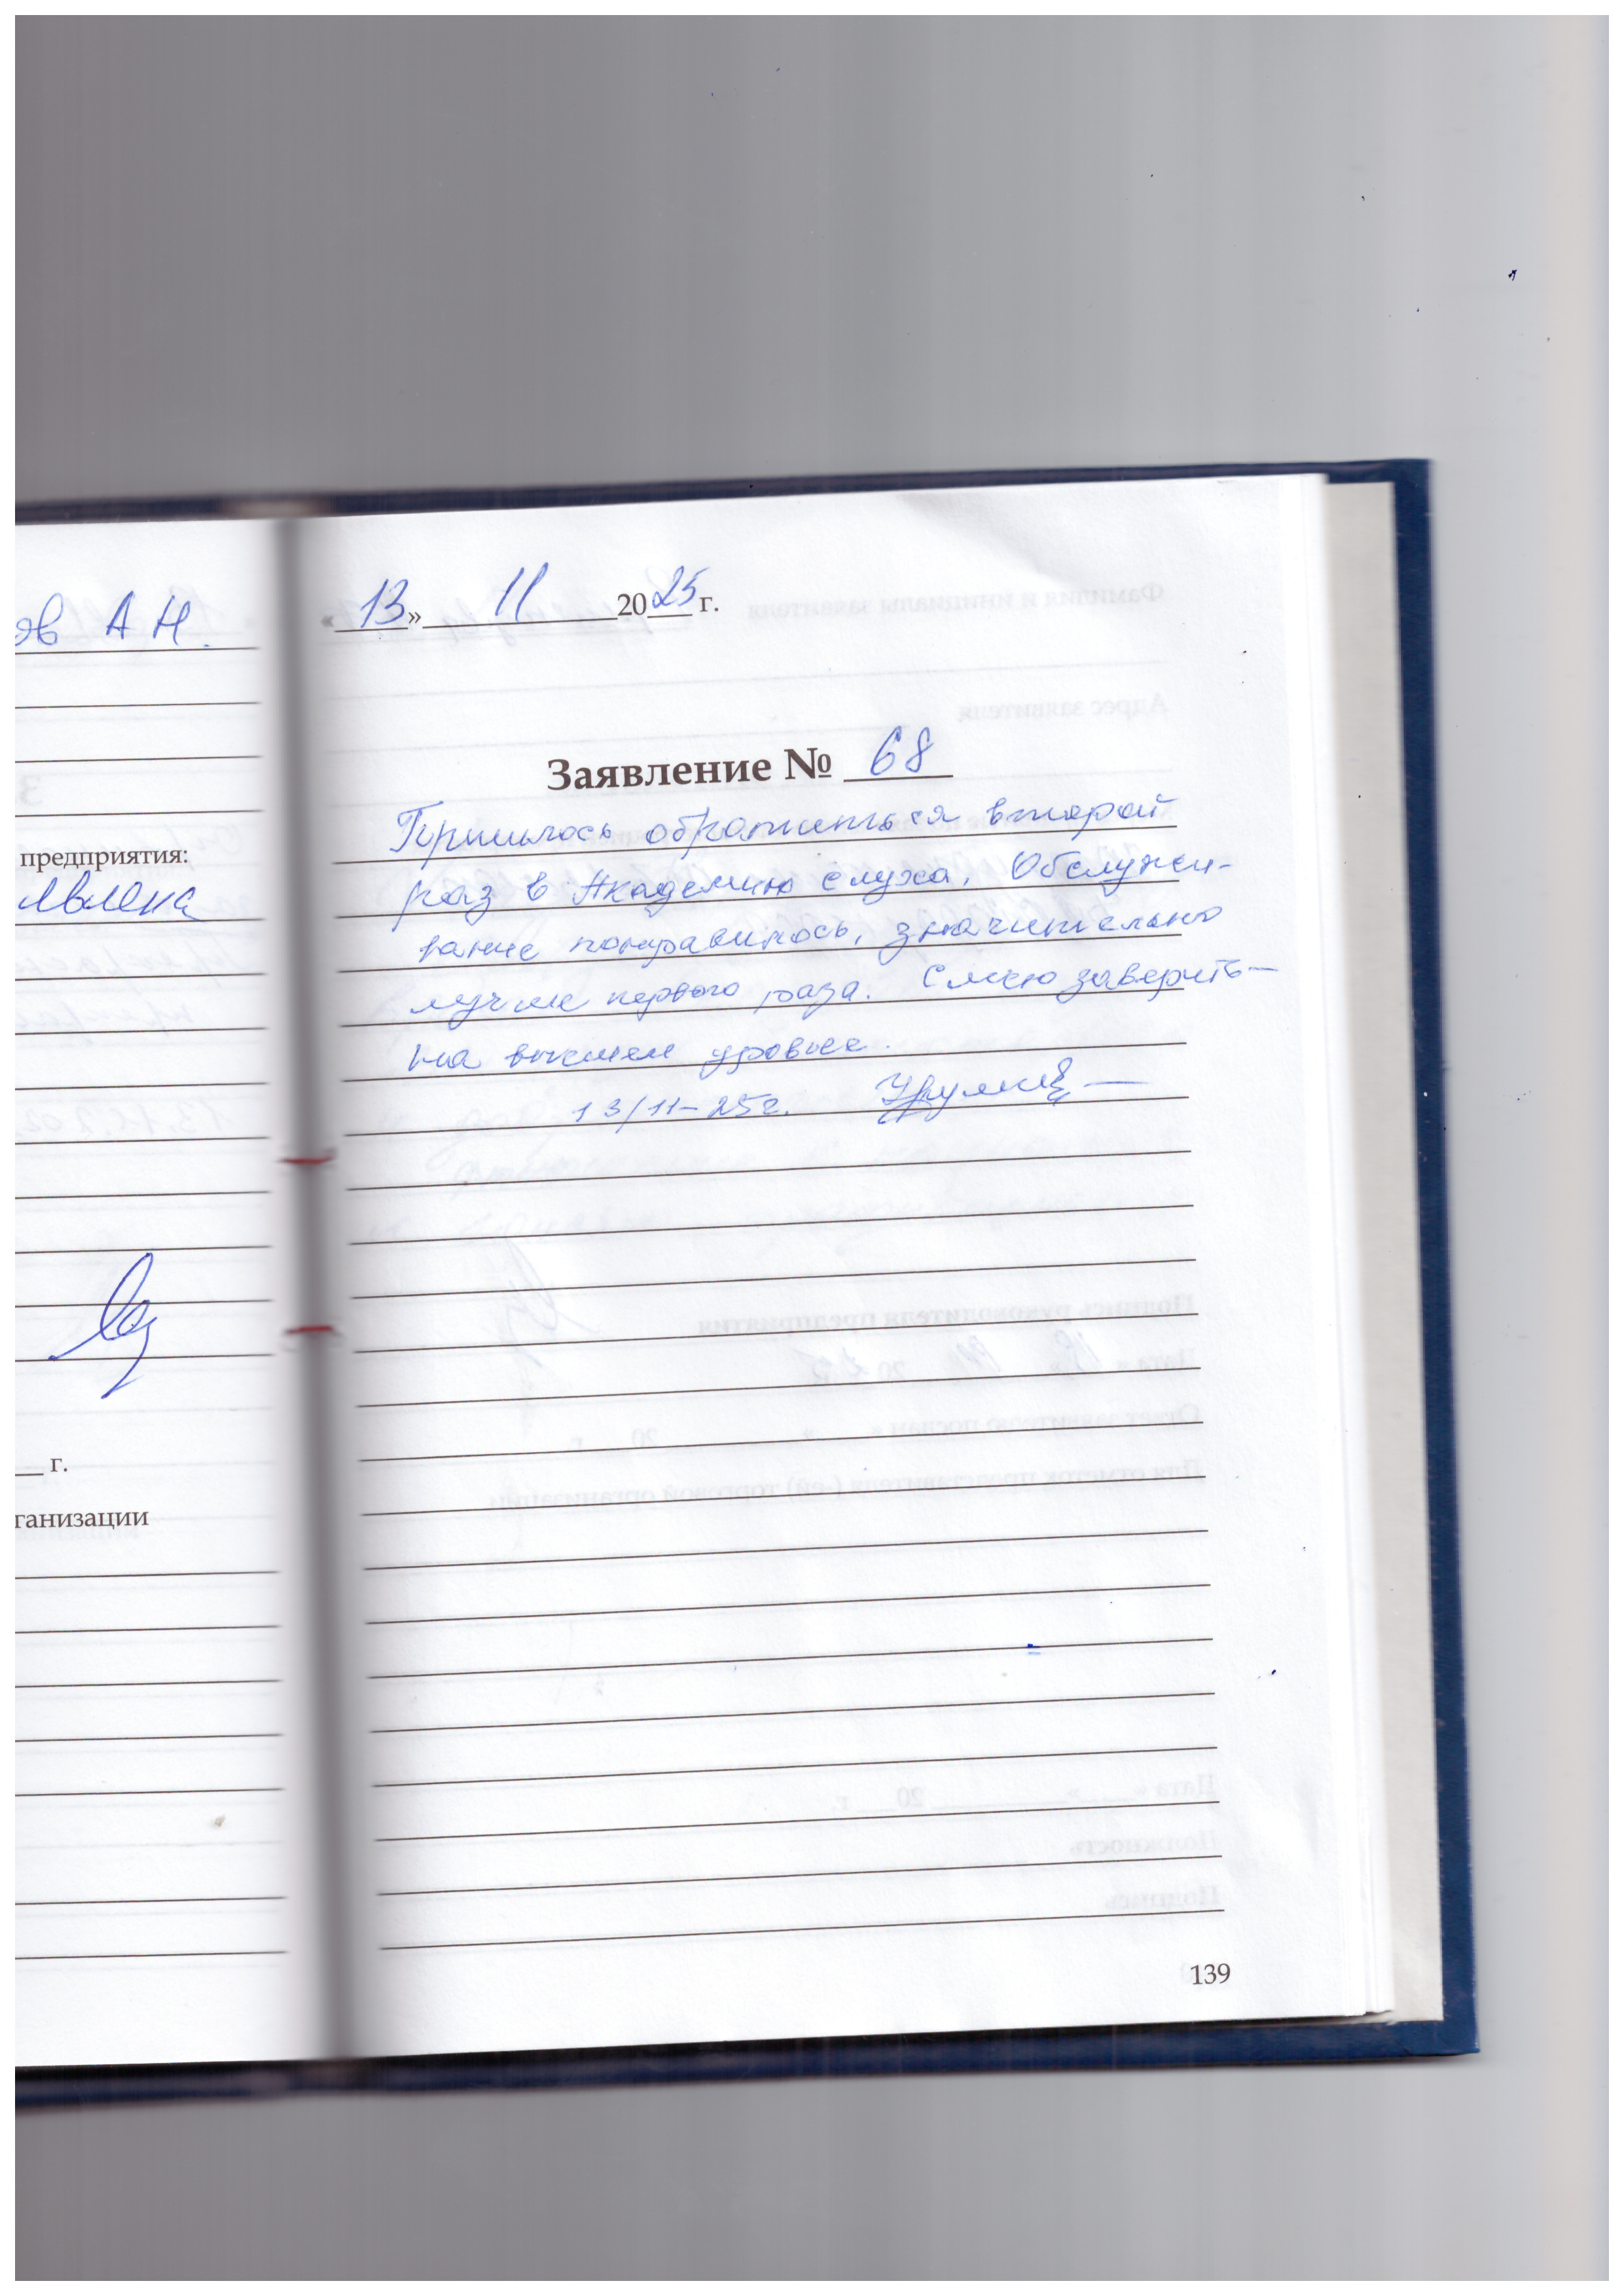 ов А Н.
предприятия:
явлена
г.
ганизации
«13» 11 2025 г.
Заявление № 68
Пришлось обратиться второй
раз в Академию слуха. Обслужи-
вание понравилось, значительно
лучше первого раза. Смею заверить—
на высшем уровне.
13/11-25г.
139